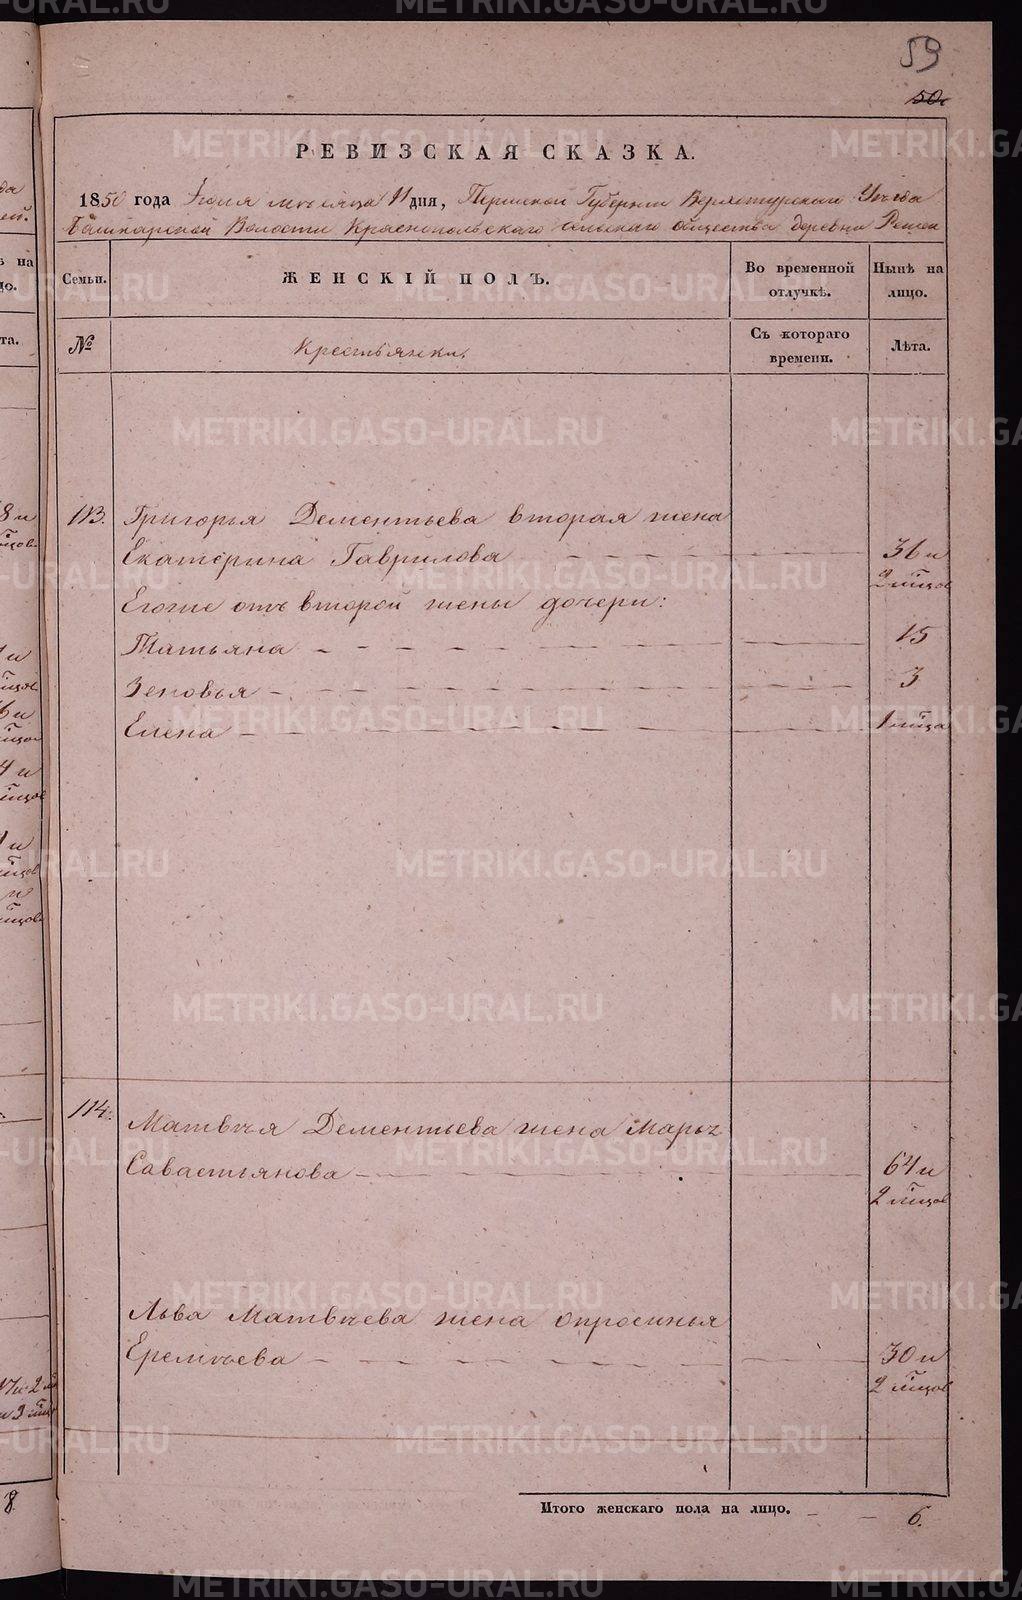 59
50
РЕВИЗСКАЯ СКАЗКА.
1850 года Июля месяца 11 дня, Пермской Губернии Верхотурского Уезда
Башкарской Волости Краснопольского сельского общества деревни
Семьи.
ЖЕНСКІЙ ПОЛЪ.
Во временной отлучкѣ.
Нынѣ на лицо.
№
Крестьянки.
Съ котораго времени.
Лѣта.
113. Григорья Дементьева вторая жена
Екатерина Гаврилова 36 и
2 мѣсцов
Егоже отъ второй жены дочери:
Татьяна 15
Зеновья 3
Елена 1 мѣсца
114. Матвѣя Дементьева жена Марья
Савастьянова 64 и
2 мѣсцов
Льва Матвѣева жена Опросинья
Еремѣева 30 и
2 мѣсцов
Итого женскаго пола на лицо. 6.
METRIKI.GASO-URAL.RU